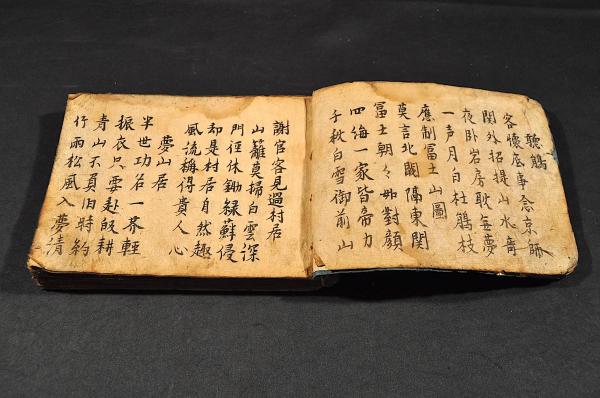 聽鵑
客懷底事念京師
閑外招提山水奇
夜卧岩房耿無夢
一声月白杜鵑枝
應制冨士山圖
莫言北闕隔東関
冨士朝々如對顔
四海一家皆帝力
千秋白雪御前山
謝官客見過村居
山籬莫掃白雲深
門徑休鋤緑蘚侵
却是村居自然趣
風流稱得貴人心
夢山居
半世功名一芥輕
振衣只要赴皈耕
青山不負旧時約
竹雨松風入夢清